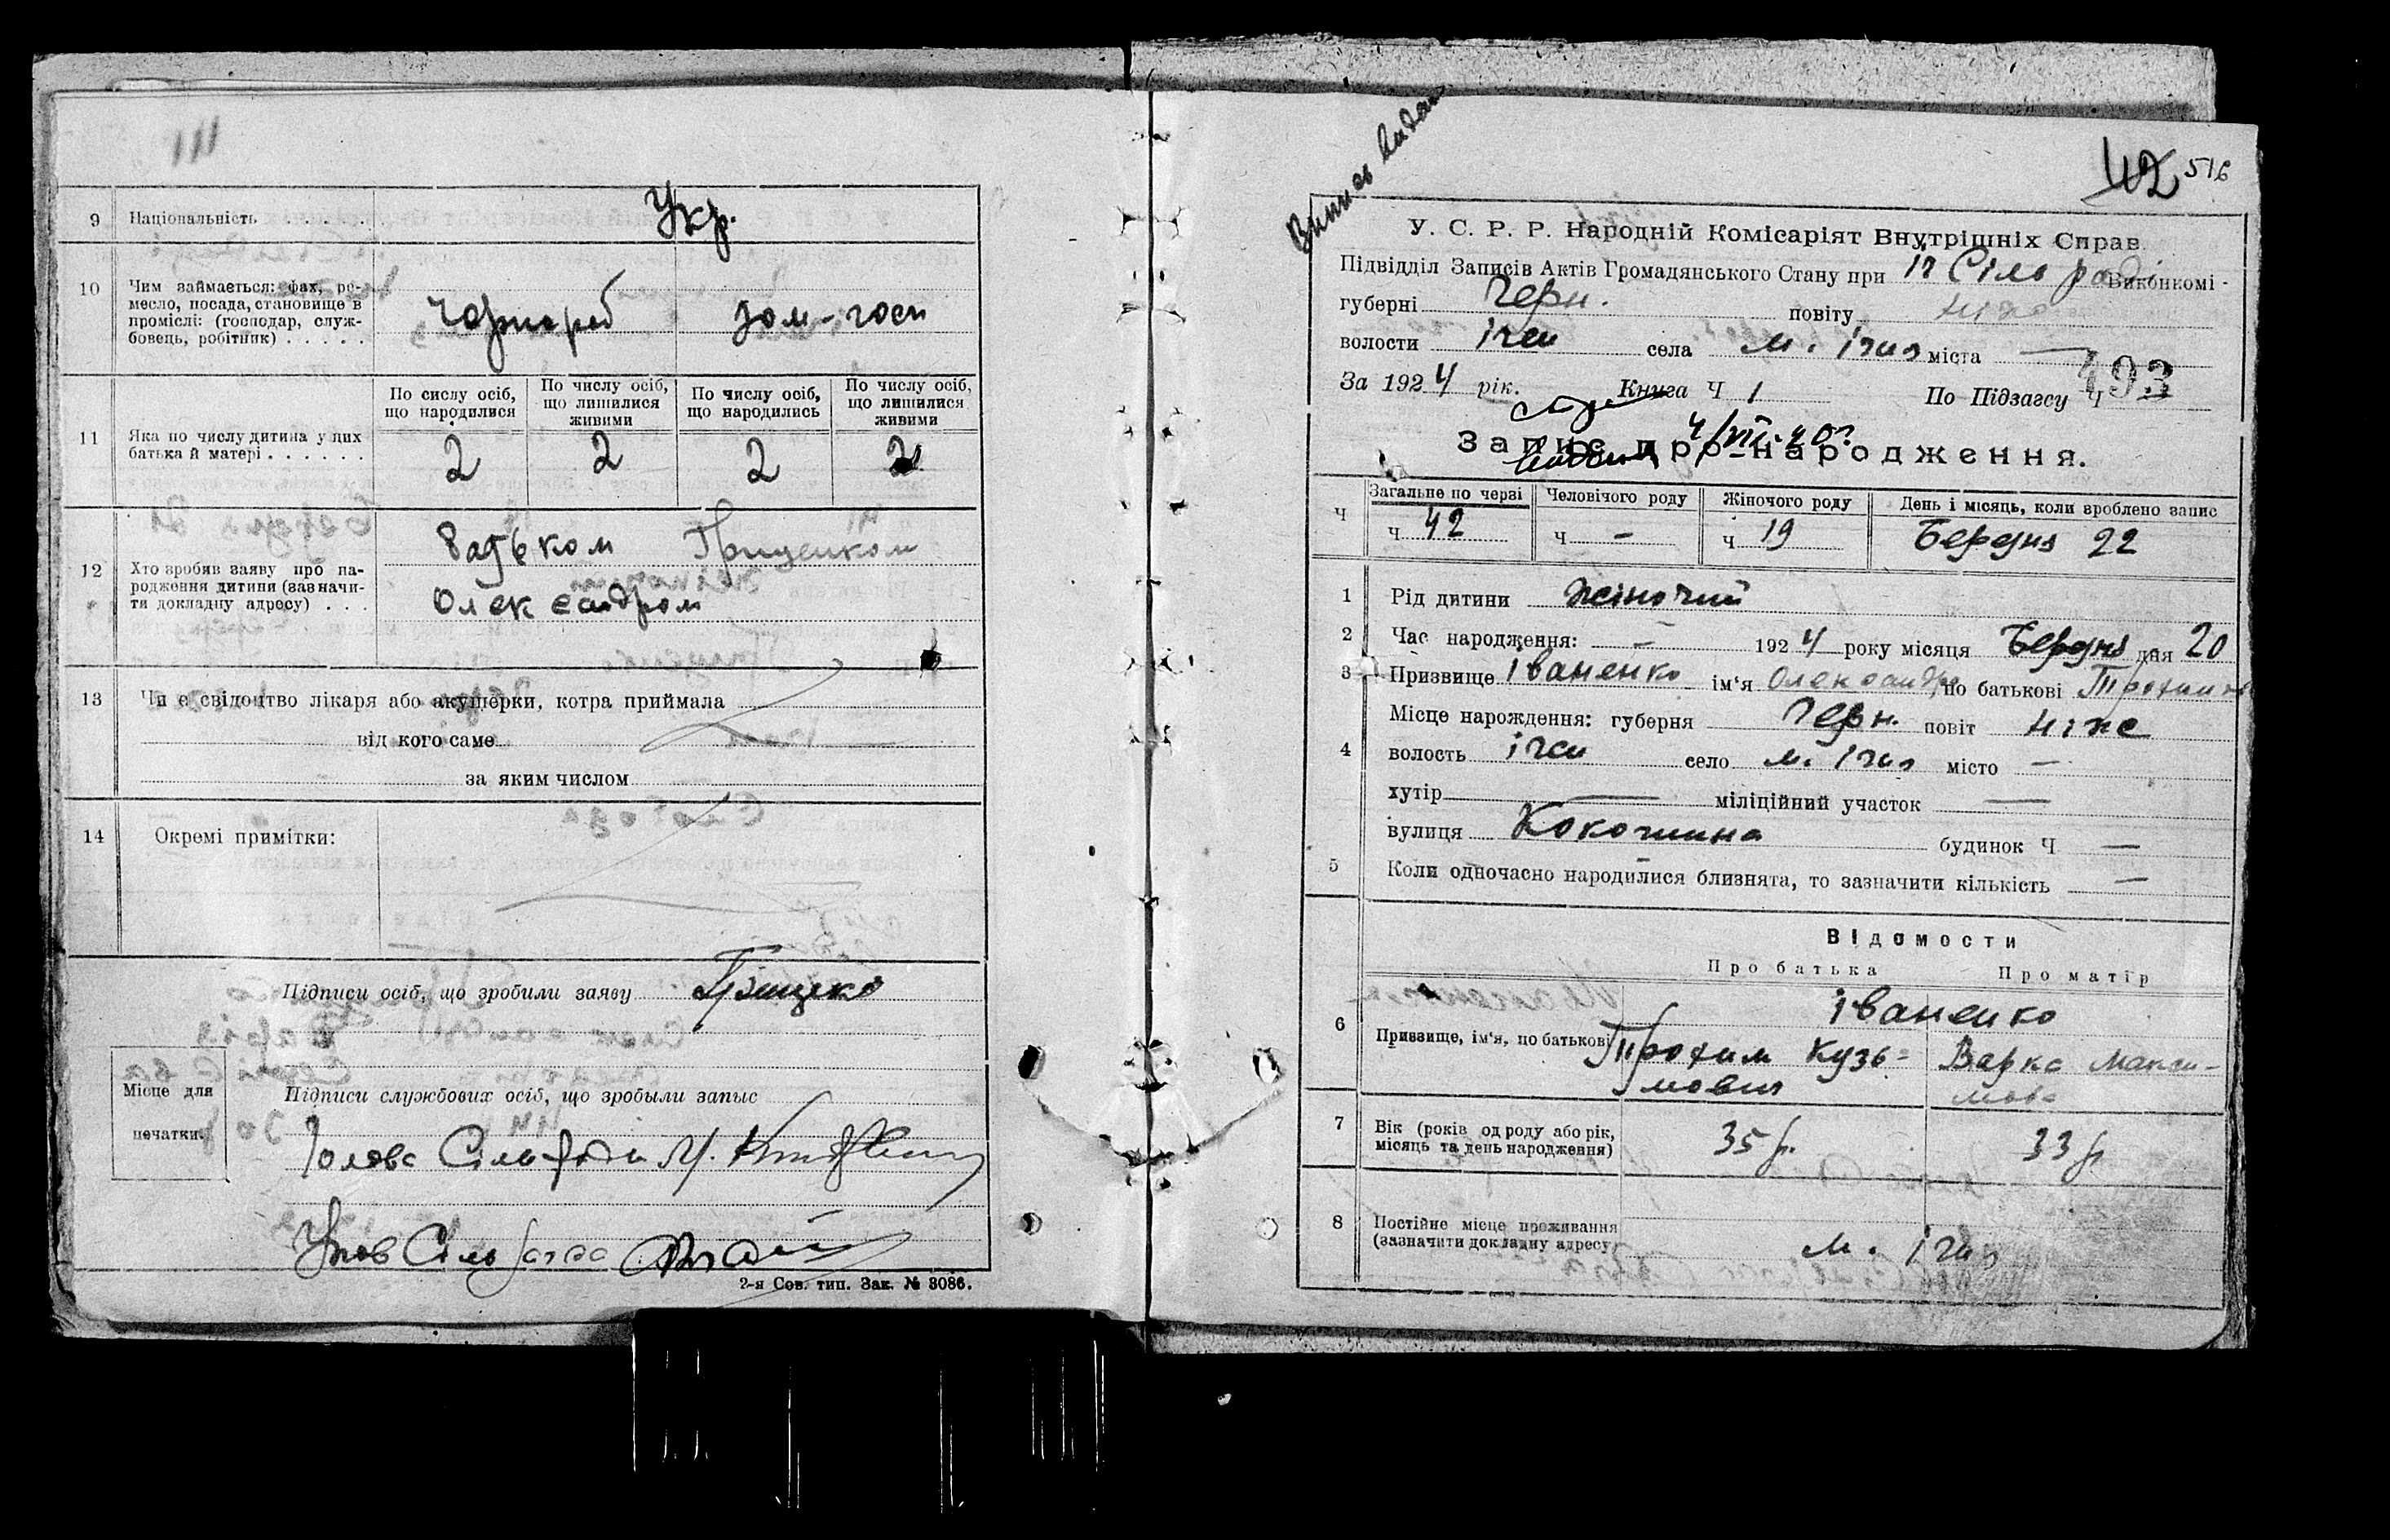 111
9 Національність . . . . . . Укр.
10 Чим займається: фах, ре-
месло, посада, становище в
проміслі: (господар, служ-
бовець, робітник) . . . . .
Чорнороб дом-госп
По сислу осіб, що народилися
По числу осіб, що лишилися живими
По числу осіб, що народились
По числу осіб, що лишилися живими
11 Яка по числу дитина у цих
батька й матері . . . . . .
2 2 2 2
12 Хто зробив заяву про на-
родження дитини (зазначи-
ти докладну адресу) . . .
Батьком Гриценком
Олександром
13 Чи є свідоцтво лікаря або акушерки, котра приймала
від кого саме
за яким числом
14 Окремі примітки:
Підписи осіб, що зробили заяву Грищеко
Місце для
печатки.
Підписи службових осіб, що зробыли запыс
Голова Сільради М.
Упов Сіль
2-я Сов. тип. Зак. № 3086.
Випись видан
42 516
У. С. Р. Р. Народній Комісаріят Внутрішніх Справ.
Підвідділ Записів Актів Громадянського Стану при Сільраді Виконкомі
губерні Черн. повіту Ніжо
волости Ічен села м. Ічня міста —
За 1924 рік. Книга Ч 1 По Підзагсу Ч 493
Запис про народження.
Ч Загальне по черзі Человічого роду Жіночого роду День і місяць, коли зроблено запис
Ч 42 Ч — Ч 19 Березня 22
1 Рід дитини жіночий
2 Час народження: — 1924 року місяця Березня дня 20
3 Призвище Іваненко ім'я Олександра по батькові Трохимов
4 Місце нарождення: губерня Черн. повіт Ніже
волость Ічен село м. Ічня місто —
хутір — міліційний участок —
вулиця Кокошина будинок Ч —
5 Коли одночасно народилися близнята, то зазначити кількість —
Відомости
Про батька Про матір
6 Призвище, ім'я, по батькові
Іваненко
Трохим Кузь=
мович
Варка Макси-
мов
7 Вік (років од роду або рік,
місяць та день народження)
35 р. 33 р
8 Постійне місце проживання
(зазначити докладну адресу)
м. Ічня